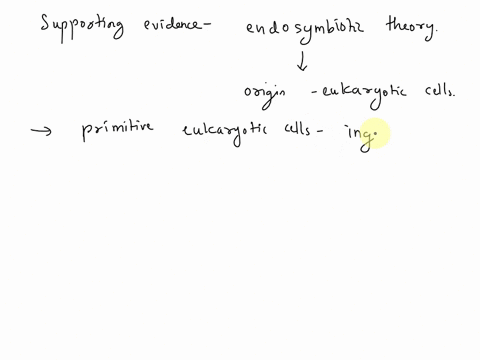 Supporting evidence - endosymbiotic theory.
↓
origin - eukaryotic cells.
→ primitive eukaryotic cells - ing